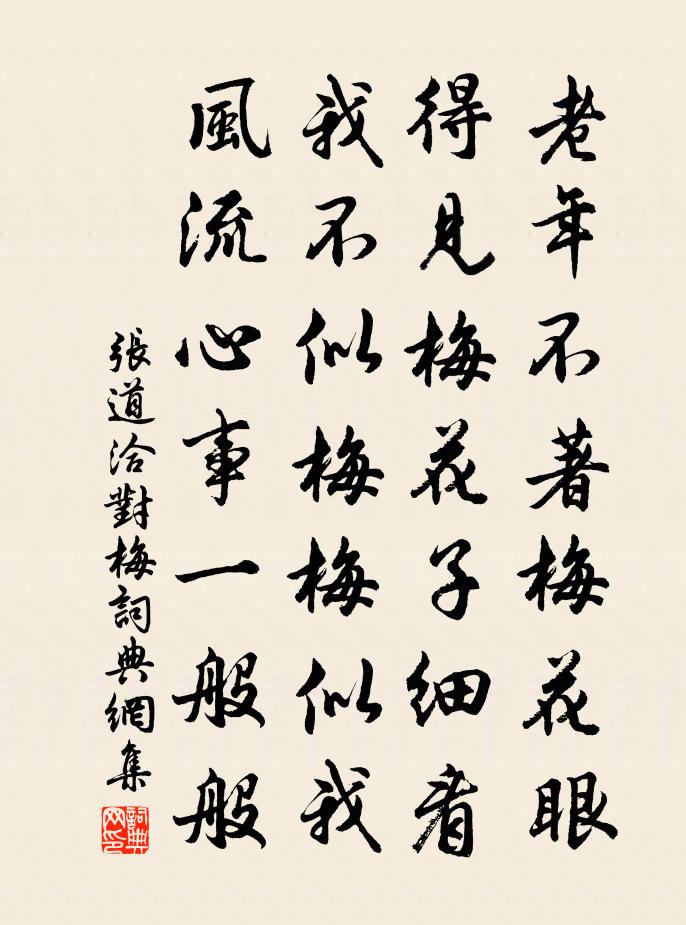 老年不著梅花眼
得見梅花子細看
我不似梅梅似我
風流心事一般般
張道洽對梅詞典網集
詞典網印